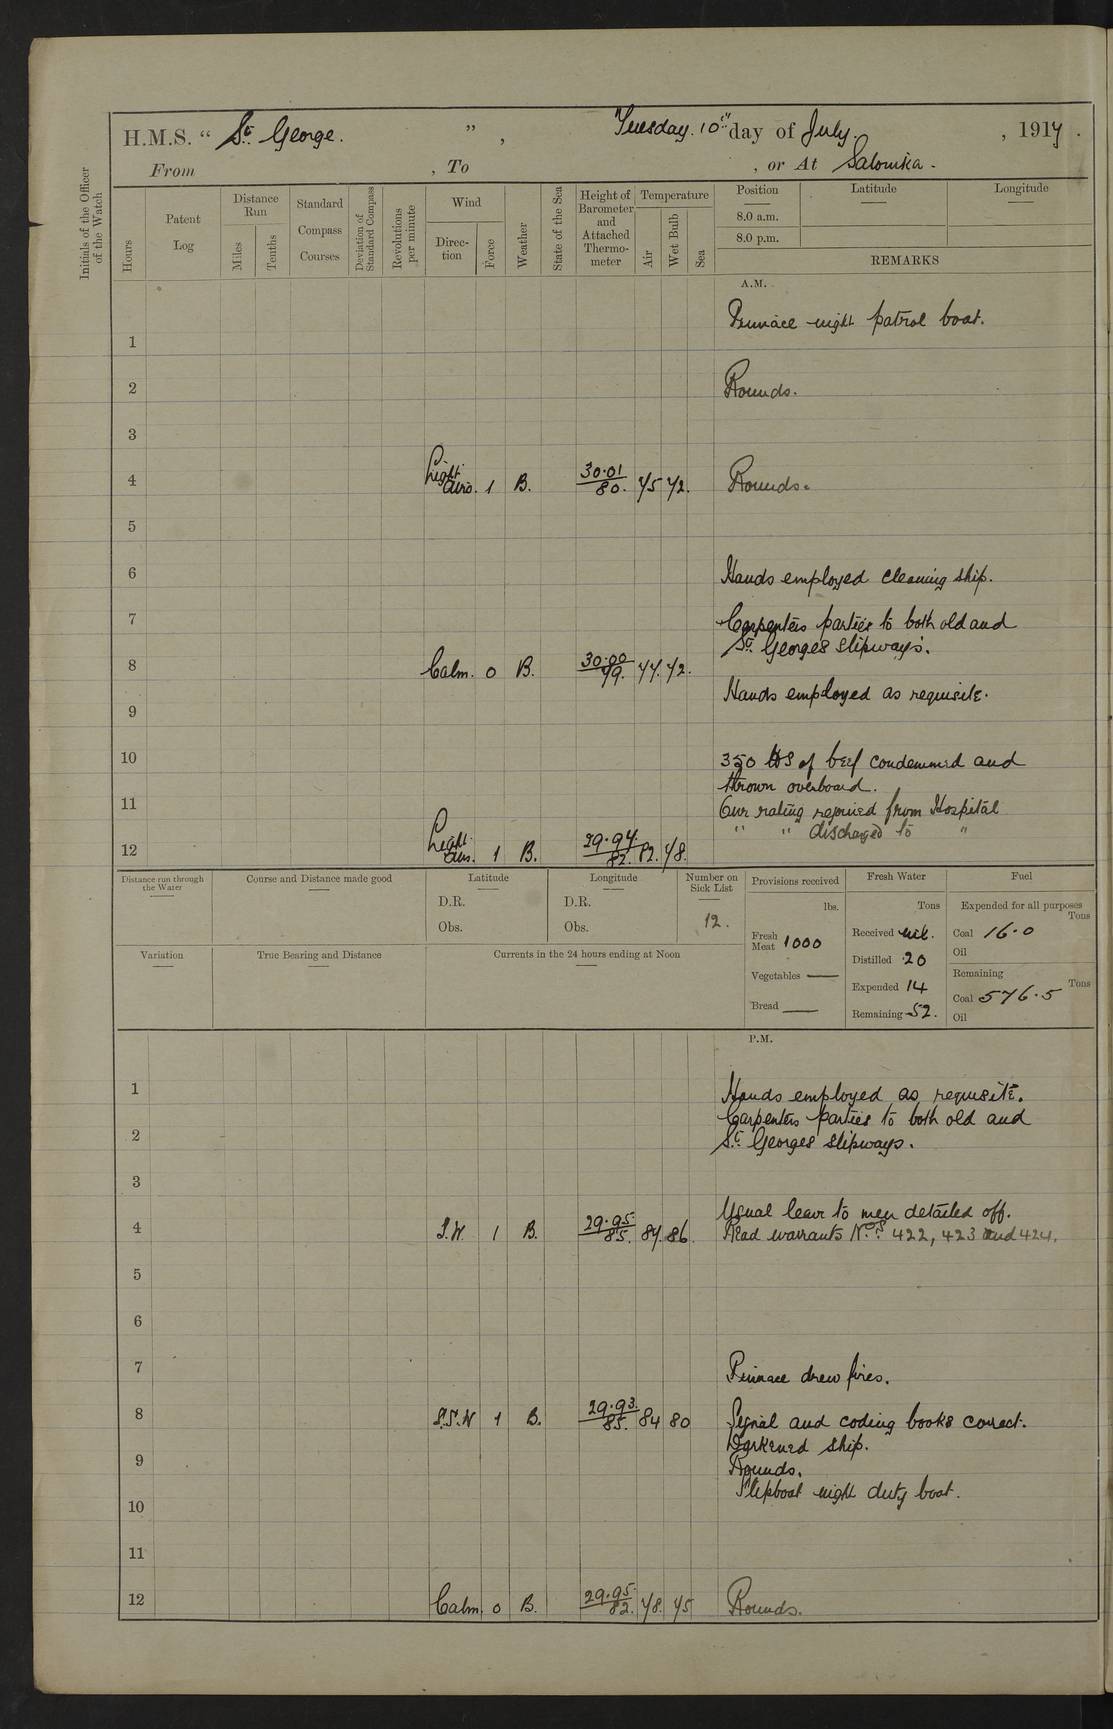 H.M.S. “ St. George. ” , Tuesday. 10th day of July. , 1917 .
From , To , or At Salonika.
Initials of the Officer of the Watch
Hours
Patent Log
Distance Run
Miles
Tenths
Standard Compass Courses
Deviation of Standard Compass
Revolutions per minute
Wind
Direction
Force
Weather
State of the Sea
Height of Barometer and Attached Thermometer
Temperature
Air
Wet Bulb
Sea
Position Latitude Longitude
8.0 a.m.
8.0 p.m.
REMARKS
A.M.
Pinnace night patrol boat.
1
2 Rounds.
3
4 Light airs. 1 B. 30.01/80. 75 72. Rounds.
5
6 Hands employed cleaning ship.
7 Carpenters parties to both old and
St. Georges slipways.
8 Calm. 0 B. 30.00/79. 77. 72.
Hands employed as requisite.
9
10 350 lbs of beef condemned and
thrown overboard.
11 One rating rejoined from Hospital
" " discharged to "
12 Light airs. 1 B. 29.94./82. 82. 78.
Distance run through the Water
Course and Distance made good
Latitude
D.R.
Obs.
Longitude
D.R.
Obs.
Number on Sick List
12.
Provisions received
lbs.
Fresh Meat 1000
Vegetables —
Bread —
Fresh Water
Tons
Received nil.
Distilled 20
Expended 14
Remaining 52.
Fuel
Expended for all purposes
Tons
Coal 16.0
Oil
Remaining
Tons
Coal 576.5
Oil
Variation
True Bearing and Distance
Currents in the 24 hours ending at Noon
P.M.
1 Hands employed as requisite.
Carpenters parties to both old and
2 St. Georges slipways.
3
Usual leave to men detailed off.
4 S.W. 1 B. 29.95./85. 87. 86. Read warrants Nos. 422, 423 and 424.
5
6
7 Pinnace drew fires.
8 S.S.W 1 B. 29.93./85. 84 80 Signal and coding books correct.
Darkened ship.
9 Rounds.
Slipboat night duty boat.
10
11
12 Calm. 0 B. 29.95./82. 78. 75 Rounds.